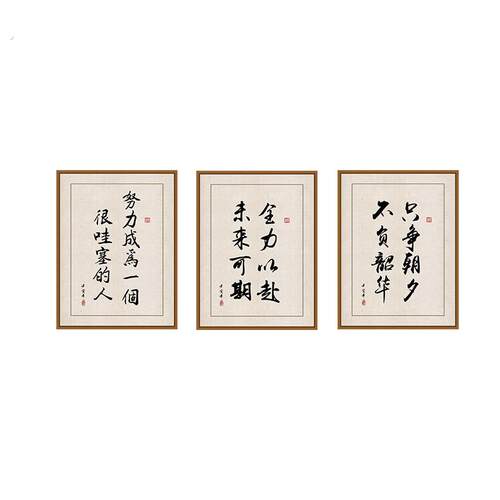 努力成爲一個
很哇塞的人
全力以赴
未来可期
只争朝夕
不负韶华